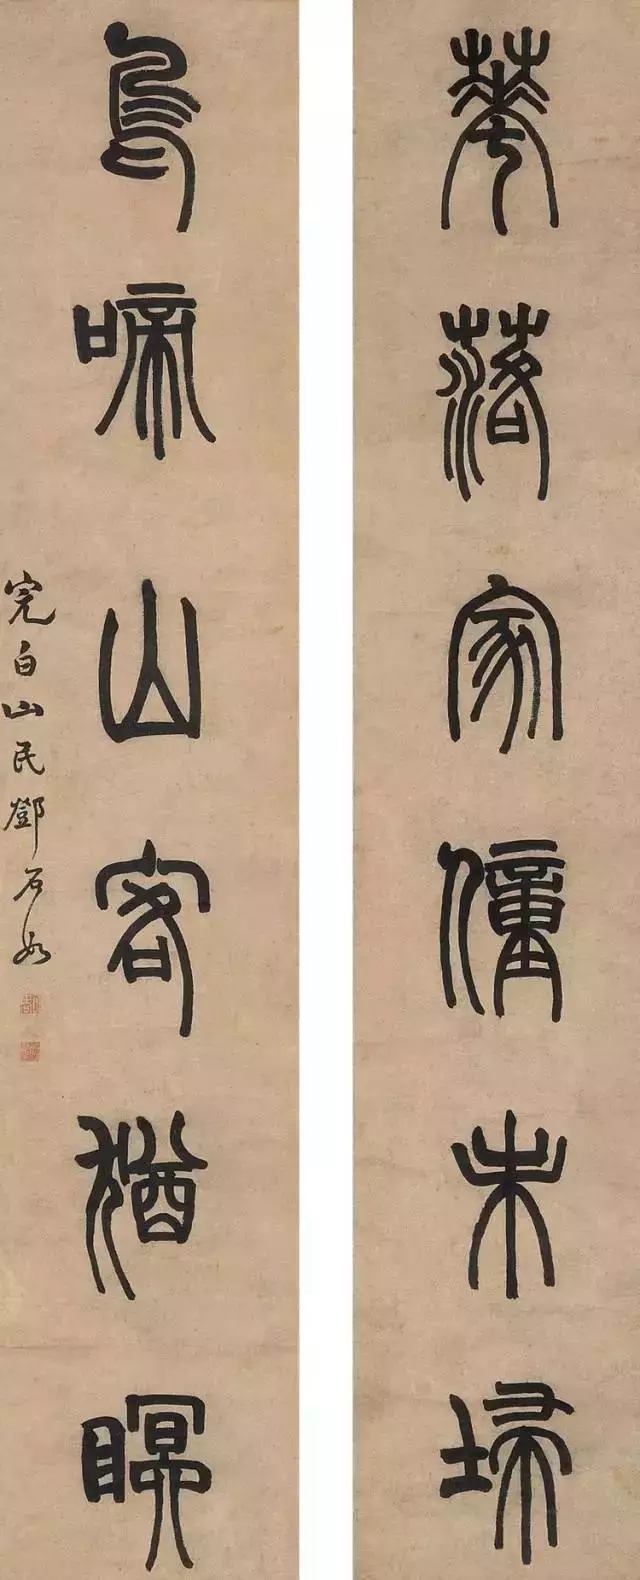 華落家僮未埽
鳥嗁山客猶瞑
完白山民鄧石如